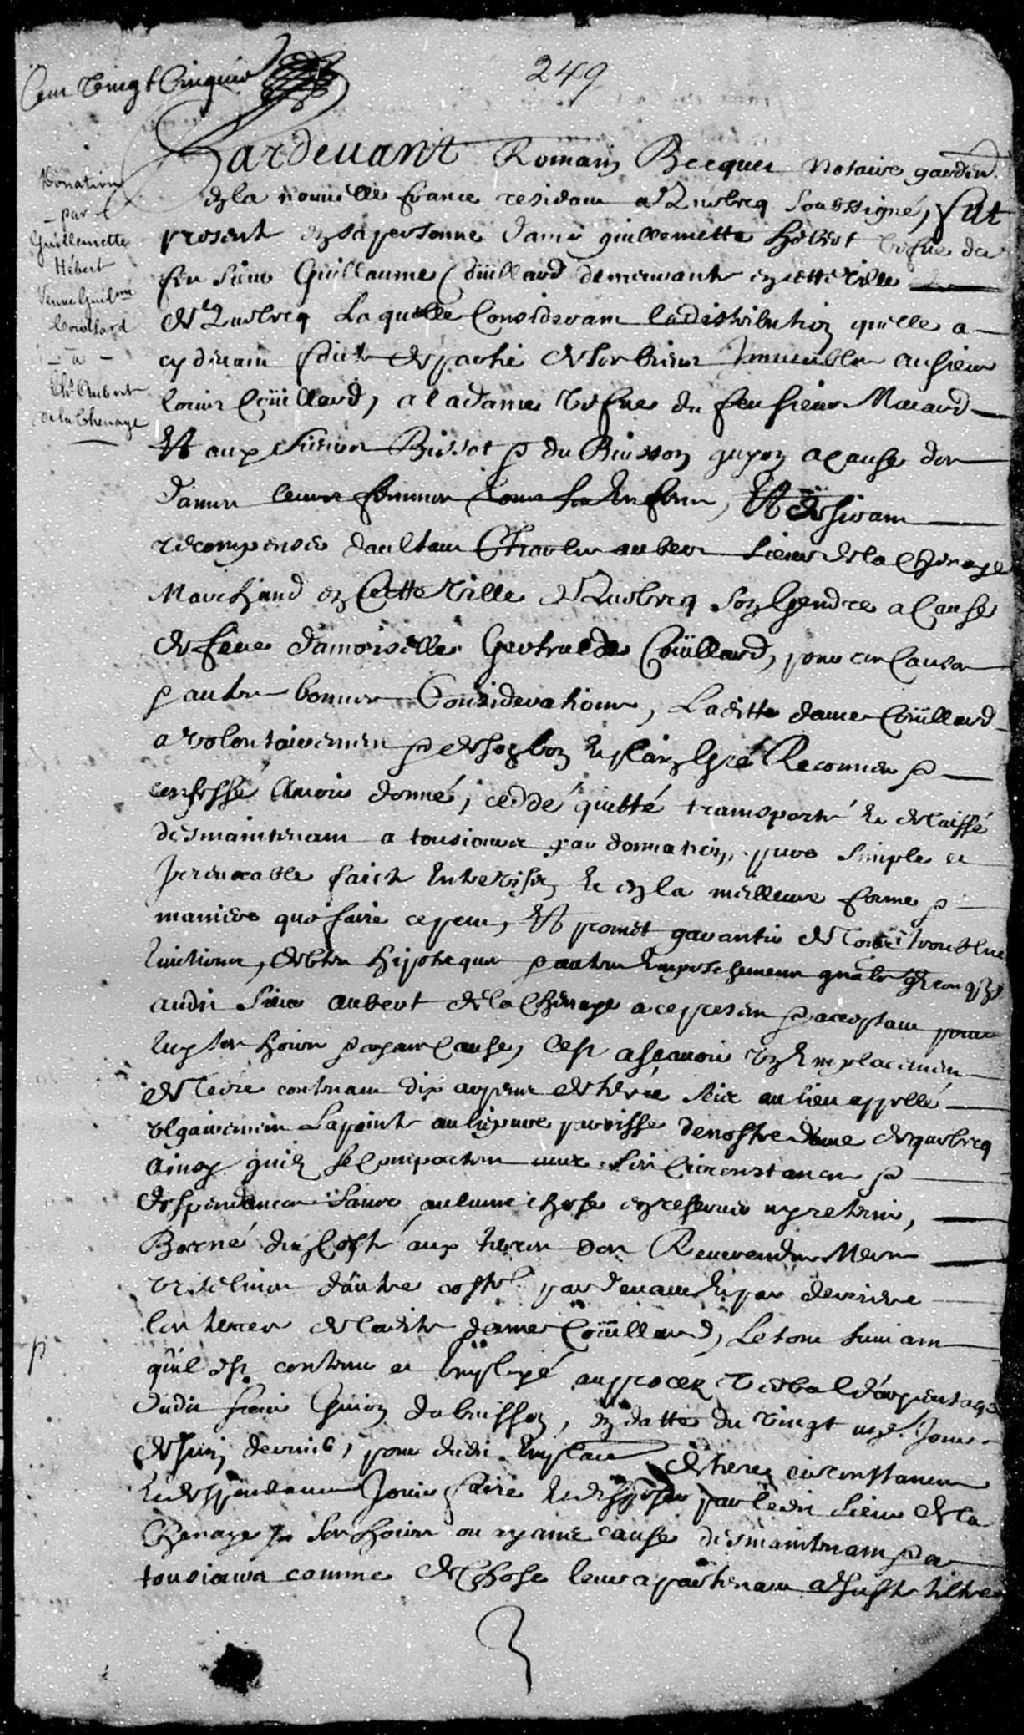 Cent Vingt Cinquie
249
Donation
par
Guillemette
Hébert
Veuve Guillme
Couillard
à
Chs Aubert
de la Chenaye
Pardevant Romain Becquet Notaire gardin
en la nouvelle france residant a Quebecq soussigné, fut
present en sa personne dame guillemette hebert vefve de
feu sieur Guillaume Coüillard demeurante en cette ville
de Quebecq Laquelle Considerant la distribution qu'elle a
cy devant faict de partie de ses biens immeubles au sieur
louis Coüillard, a la dame vefve du feu sieur Macard
Et aux sieurs Bissot & du Buisson guyon a cause des
dames leurs femmes tous ses enfans, Et desirant
recompenser d'aultant Charles aubert sieur de la Chenaye
Marchand en Cette Ville de Quebecq son Gendre a Cause
de feue damoiselle Gertrude Coüillard, pour ces Causes
& autres bonnes Considerations, Laditte dame Coüillard
a volontairement & de son bon et plain gré Reconnu &
confessé Avoir donné, ceddé quitté transporté et delaissé
des maintenant a tousiours par donnation pure simple et
Irrevocable faict entrevifs et en la meilleure forme &
maniere que faire ce peut, Et promet garantir de tous troubles
Evictions, debtes hipoteques & autres Empeschemens quelsconques
audit sieur aubert de la Chenaye a ce present & acceptant pour
luy ses hoirs & ayans Cause, C'est ascavoir un Emplacement
de Terre contenant dix arpens de terre size au lieu appellé
vulgairement Lapointe aux lievre parroisse de nostre dame de quebecq
Ainsy qu'il se Comporte avec ses Circonstances &
despendances sans aulcune chose en reserver ny retenir,
Borné d'un Costé aux terres des Reverendes Meres
Urselines d'autre costé par devant et par derriere
les terres de laditte dame Coüillard, Le tout suivant
qu'il est contenu et Employé au procez Verbal d'arpentage
dudit sieur Guion dubuisson, en datte du vingt un.e Jour
de Juin dernier, pour dudit Emplace de terre circonstances
et despendances Jouir faire et disposer par ledit sieur de la
Chenaye ses hoirs ou ayans cause des maintenant & a
tousiours comme de Chose leur apartenant a Juste tiltre